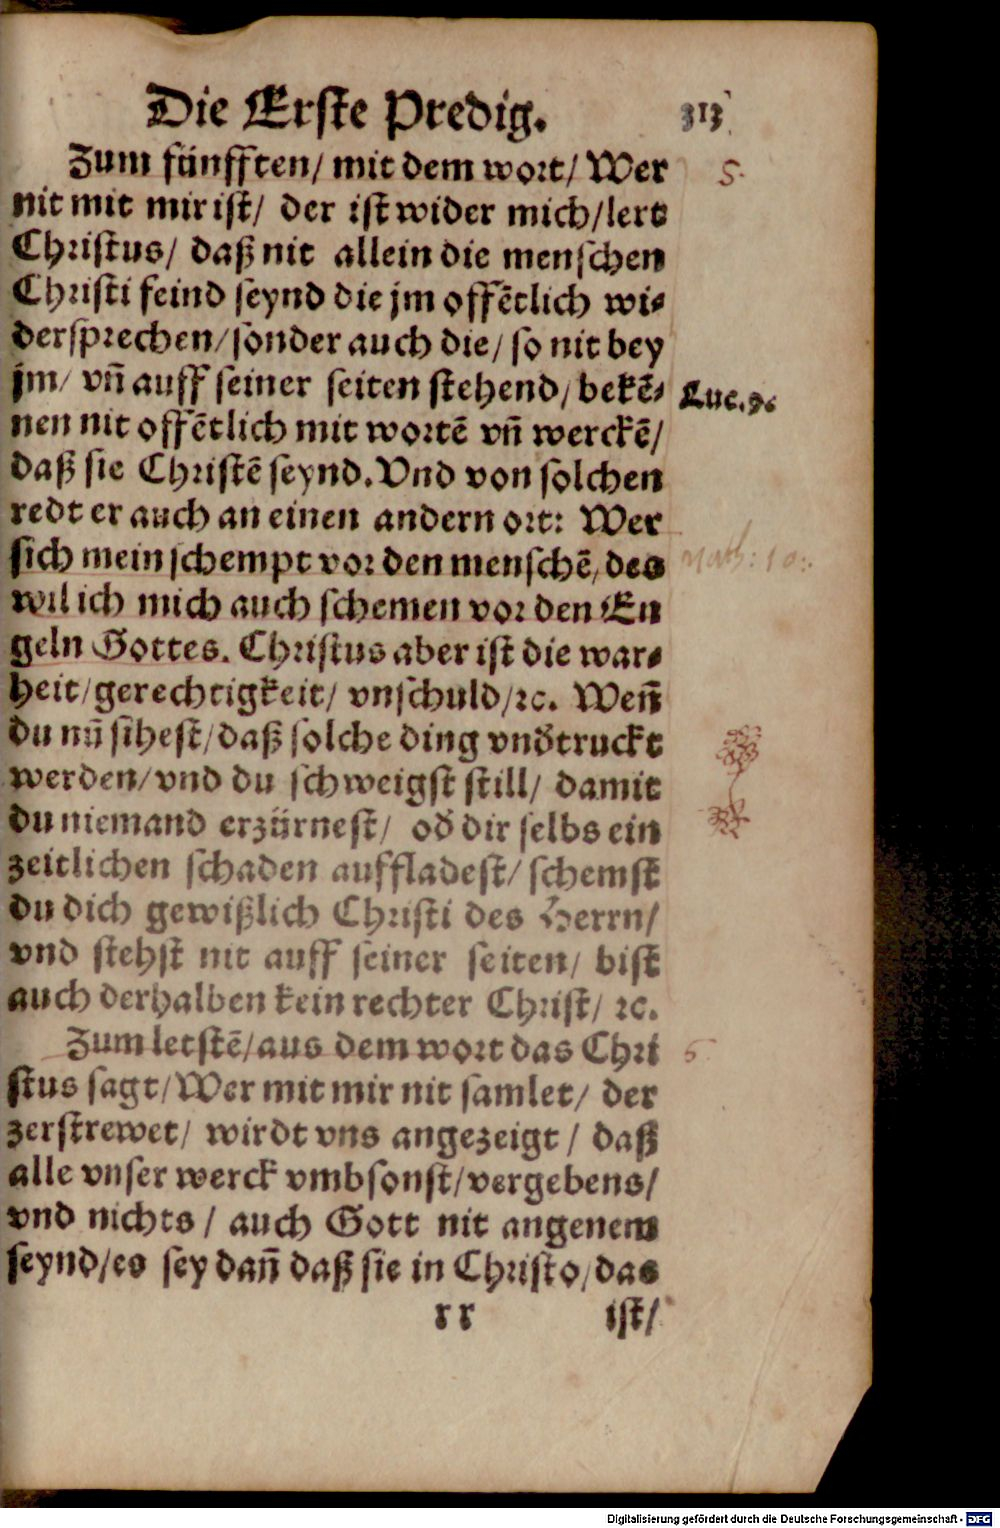 Die Erste Predig. 313
Zum fünfften/ mit dem wort/ Wer
5.
nit mit mir ist/ der ist wider mich/lert
Christus/ daß nit allein die menschen
Christi feind seynd die jm offētlich wi⸗
dersprechen/sonder auch die/ so nit bey
jm/ vñ auff seiner seiten stehend/ bekē⸗
Luc. 9.
nen nit offētlich mit wortē vñ werckē/
daß sie Christē seynd. Vnd von solchen
redt er auch an einen andern ort: Wer
sich mein schempt vor den menschē, des
Math: 10:
wil ich mich auch schemen vor den En
geln Gottes. Christus aber ist die war⸗
heit/gerechtigkeit/ vnschuld/ꝛc. Weñ
du nū sihest/daß solche ding vnđtruckt
werden/vnd du schweigst still/ damit
du niemand erzürnest/ ođ dir selbs ein
zeitlichen schaden auffladest/ schemst
du dich gewißlich Christi des Herrn/
vnd stehst nit auff seiner seiten/ bist
auch derhalben kein rechter Christ/ ꝛc.
Zum letstē/aus dem wort das Chri
6
stus sagt/Wer mit mir nit samlet/ der
zerstrewet/ wirdt vns angezeigt / daß
alle vnser werck vmbsonst/vergebens/
vnd nichts / auch Gott nit angenem
seynd/es sey dañ daß sie in Christo/das
rr ist/
Digitalisierung gefördert durch die Deutsche Forschungsgemeinschaft - DFG